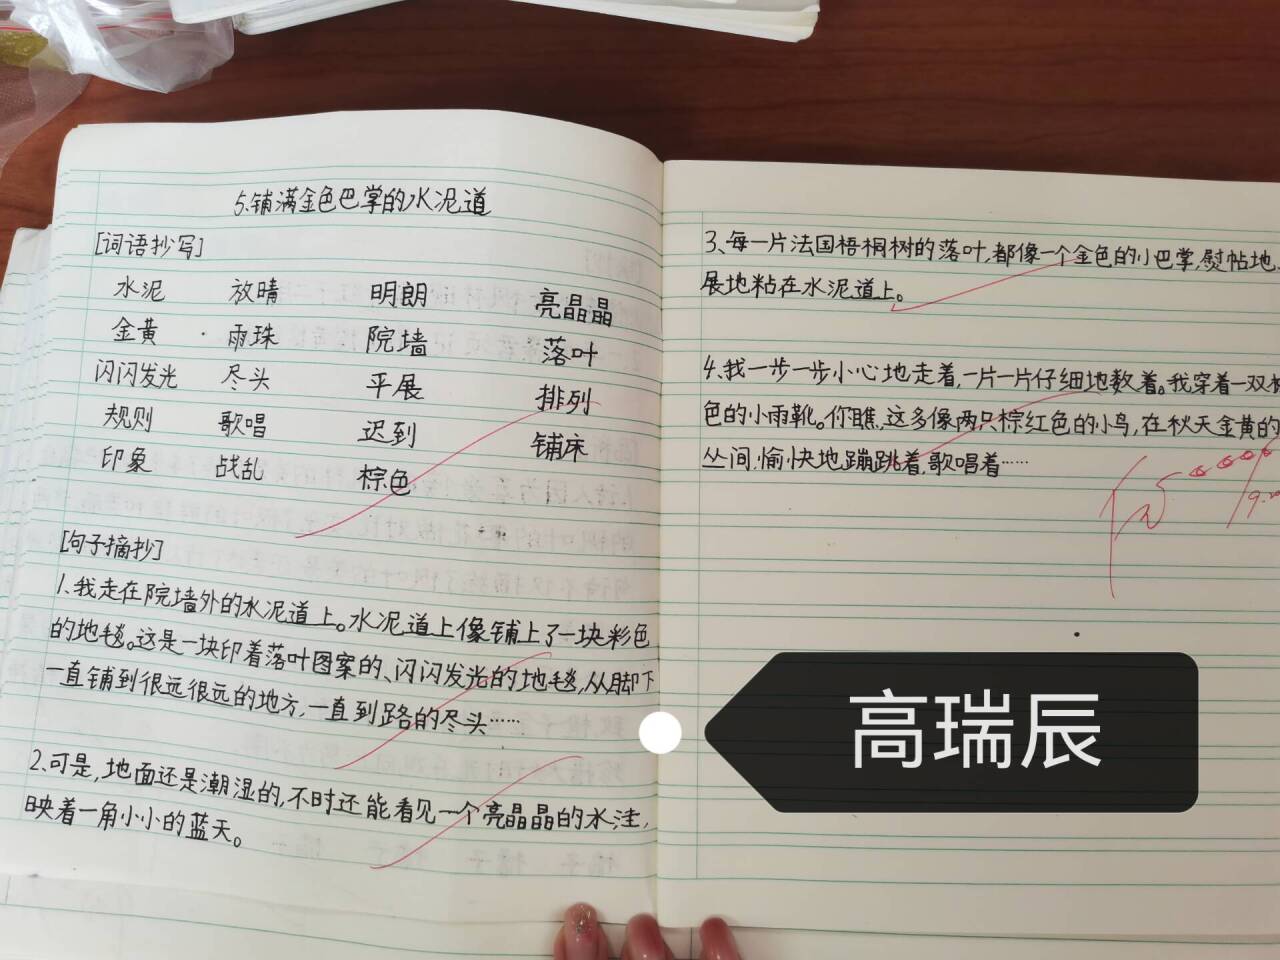 5.铺满金色巴掌的水泥道
[词语抄写]
水泥 放晴 明朗 亮晶晶
金黄 雨珠 院墙 落叶
闪闪发光 尽头 平展 排列
规则 歌唱 迟到 铺床
印象 战乱 棕色
[句子摘抄]
1.我走在院墙外的水泥道上。水泥道上像铺上了一块彩色
的地毯。这是一块印着落叶图案的、闪闪发光的地毯,从脚下
一直铺到很远很远的地方,一直到路的尽头……
2.可是,地面还是潮湿的,不时还能看见一个亮晶晶的水洼,
映着一角小小的蓝天。
3、每一片法国梧桐树的落叶,都像一个金色的小巴掌,熨帖地、
展地粘在水泥道上。
4.我一步一步小心地走着,一片一片仔细地数着。我穿着一双棕
色的小雨靴。你瞧,这多像两只棕红色的小鸟,在秋天金黄的
丛间,愉快地蹦跳着,歌唱着……
高瑞辰